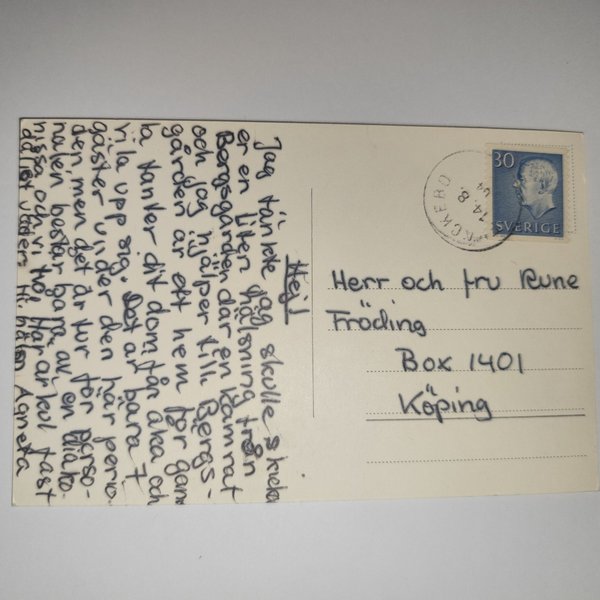 Hej!
Jag tänkte jag skulle skicka
er en liten hälsning från
Bergsgården där en kamrat
och jag hjälper till. Bergs-
gården är ett hem för gam
la tanter dit dom får åka och
vila upp sig. Det är bara 7
gäster under den här perio
den men det är tur för perso-
nalen består bara av en diako-
nissa och vi två. Här är kul fast
dåligt väder. M. hälsn Agneta
30
SVERIGE
CKERÖ
14.8.
64
Herr och fru Rune
Fröding
Box 1401
Köping